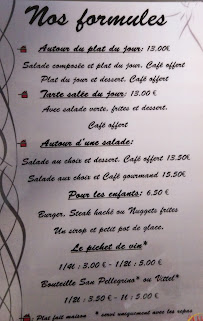 Nos formules
Autour du plat du jour: 13.00€
Salade composée et plat du jour. Café offert
Plat du jour et dessert. Café offert
Tarte salée du jour: 13.00 €
Avec salade verte, frites et dessert.
Café offert
Autour d'une salade:
Salade au choix et dessert. Café offert 13.50€
Salade aux choix et Café gourmand 15.50€
Pour les enfants: 6.50 €
Burger, Steak haché ou Nuggets frites
Un sirop et petit pot de glace.
Le pichet de vin*
1/4l : 3.00 € - 1/2l : 5.00 €
Bouteille San Pellegrino* ou Vittel*
1/2l : 3.50 € - 1l : 5.00 €
Plat fait maison * servi uniquement avec les repas